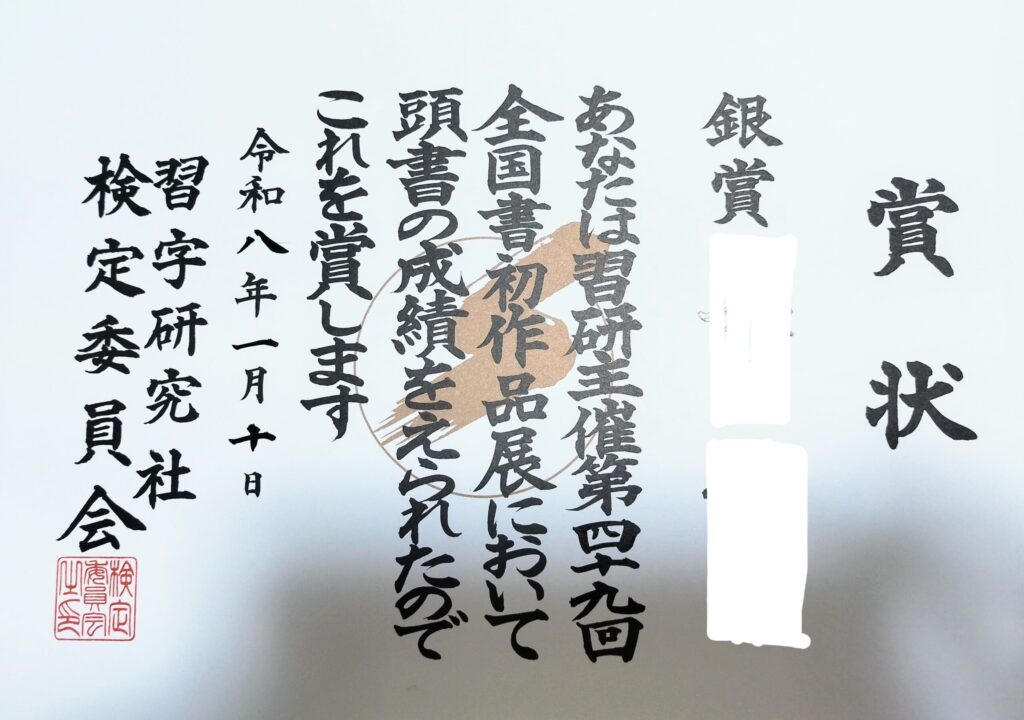 賞状
銀賞
あなたは習研主催第四十九回
全国書初作品展において
頭書の成績をえられたので
これを賞します
令和八年一月十日
習字研究社
検定委員会
検定
委員会
之印